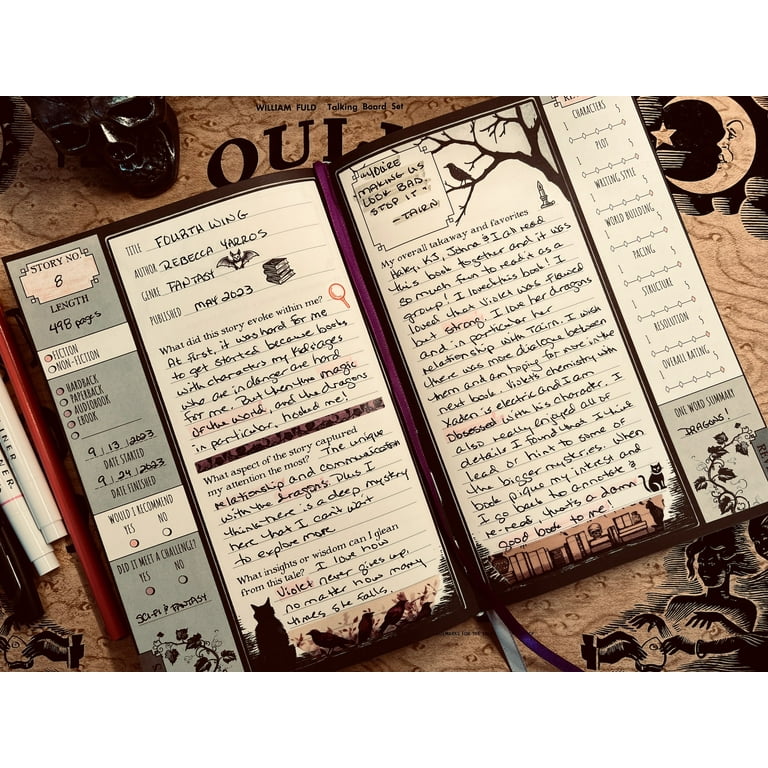 WILLIAM FULD Talking Board Set
OUIJ
STORY NO.
8
LENGTH
498 pages
FICTION
NON-FICTION
HARDBACK
PAPERBACK
AUDIOBOOK
EBOOK
9/13/2023
DATE STARTED
9/24/2023
DATE FINISHED
WOULD I RECOMMEND
YES NO
DID IT MEET A CHALLENGE?
YES NO
SCI-FI & FANTASY
TITLE FOURTH WING
AUTHOR REBECCA YARROS
GENRE FANTASY
PUBLISHED MAY 2023
What did this story evoke within me?
At first, it was hard for me
to get started because books
with characters my kids' ages
who are in danger are hard
for me. But then the magic
of the world, and the dragons
in particular, hooked me!
What aspect of the story captured
my attention the most? The unique
relationship and communication
with the dragons. Plus I
think there is a deep, mystery
here that I can't wait
to explore more
What insights or wisdom can I glean
from this tale? I love how
Violet never gives up,
no matter how many
times she falls.
"YOU'RE
MAKING US
LOOK BAD.
STOP IT"
-TAIRN
My overall takeaway and favorites
Haley, KJ, Johna & I all read
this book together and it was
so much fun to read it as a
group! I loved this book! I
loved that Violet was flawed
but strong. I love her dragons
and in particular her
relationship with Tairn. I wish
there was more dialogue between
them and am hoping for more in the
next book. Violet's chemistry with
Xaden is electric and I am
obsessed with his character. I
also really enjoyed all of
details I found that I thus
lead or hint to some of
the bigger mysteries. When
book pique my intrest and
I go back to annotate &
re-read, that's a damn
good book to me!
CHARACTERS
1 5
PLOT
1 5
WRITING STYLE
1 5
WORLD BUILDING
1 5
PACING
1 5
STRUCTURE
1 5
RESOLUTION
1 5
OVERALL RATING
1 5
ONE WORD SUMMARY
DRAGONS!